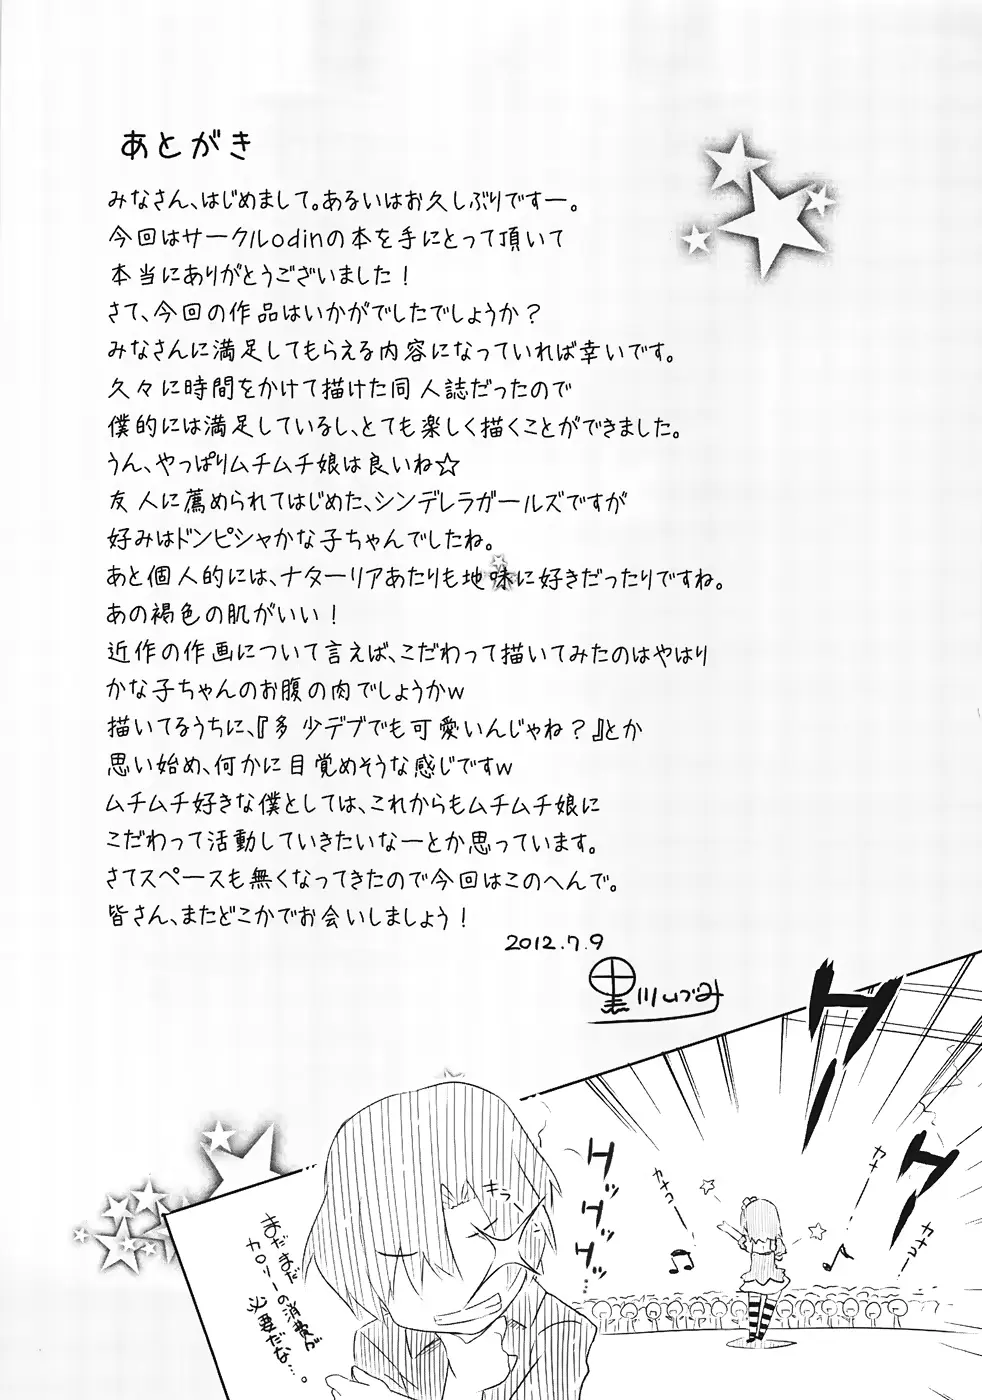 あとがき
みなさん、はじめまして。あるいはお久しぶりですー。
今回はサークルodinの本を手にとって頂いて
本当にありがとうございました！
さて、今回の作品はいかがでしたでしょうか？
みなさんに満足してもらえる内容になっていれば幸いです。
久々に時間をかけて描けた同人誌だったので
僕的には満足しているし、とても楽しく描くことができました。
うん、やっぱりムチムチ娘は良いね☆
友人に薦められてはじめた、シンデレラガールズですが
好みはドンピシャかな子ちゃんでしたね。
あと個人的には、ナターリアあたりも地味に好きだったりですね。
あの褐色の肌がいい！
近作の作画について言えば、こだわって描いてみたのはやはり
かな子ちゃんのお腹の肉でしょうかw
描いてるうちに、『多少デブでも可愛いんじゃね？』とか
思い始め、何かに目覚めそうな感じですw
ムチムチ好きな僕としては、これからもムチムチ娘に
こだわって活動していきたいなーとか思っています。
さてスペースも無くなってきたので今回はこのへんで。
皆さん、またどこかでお会いしましょう！
2012.7.9
黒川いづみ
カナコー
カナコー
キラ
まだまだ
カロリーの消費が
必要だな…。